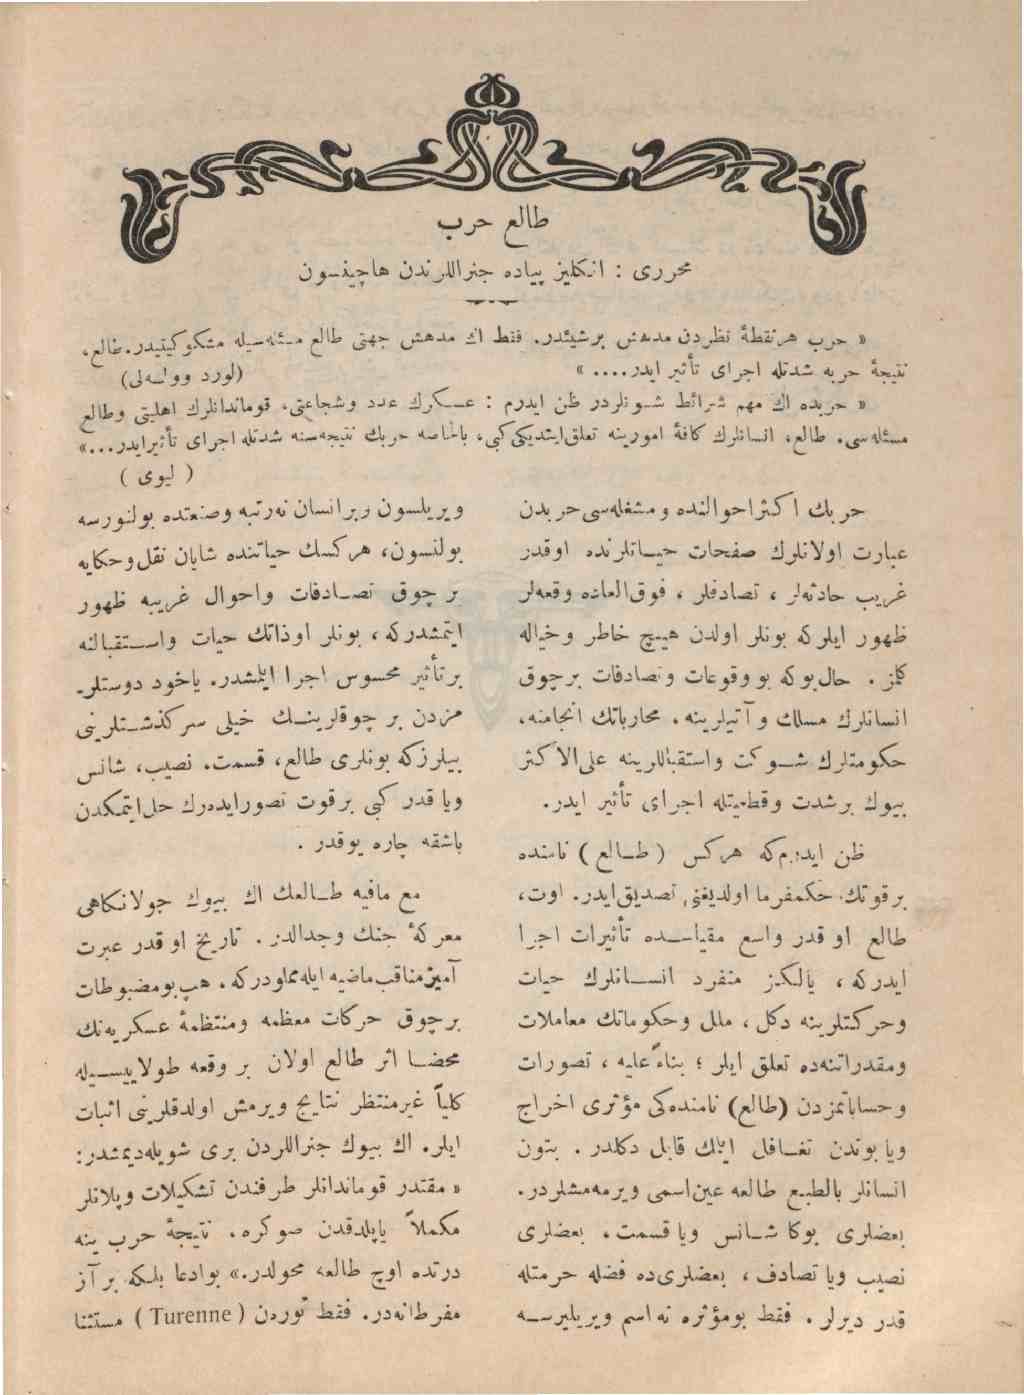 طالع حرب
محرری : انكلیز پیاده جنراللرندن هاچینسون
« حرب هرنقطهٔ نظردن مدهش برشیئدر. فقط اك مدهش جهتی طالع مسئله‌سیله مشكوكیتیدر. طالع،
نتیجهٔ حربه شدتله اجرای تأثیر ایدر.... » (لورد وولسه‌لی)
« حربده اك مهم شرائط شونلردر ظن ایدرم : عسكرك عدد وشجاعتی، قوماندانلرك اهلیتی وطالع
مسئله‌سی. طالع، انسانلرك كافهٔ امورینه تعلق‌ایتدیكی‌كبی، بالخاصه حربك نتیجه‌سنه شدتله اجرای تأثیرایدر...»
( لیوی )
حربك اكثراحوالنده ومشغله‌سی‌حربدن
عبارت اولانلرك صفحات حیاتلرنده اوقدر
غریب حادثه‌لر ، تصادفلر ، فوق‌العاده وقعه‌لر
ظهور ایلركه بونلر اولدن هیچ خاطر وخیاله
كلز . حال‌بوكه بو وقوعات وتصادفات برچوق
انسانلرك مسلك و آتیلرینه، محارباتك انجامنه،
حكومتلرك شوكت واستقباللرینه علی‌الاكثر
بیوك برشدت وقطعیتله اجرای تأثیر ایدر.
ظن ایدرم‌كه هركس ( طالع ) نامنده
برقوتك حكمفرما اولدیغنی تصدیق‌ایدر. اوت،
طالع اوقدر واسع مقیاسده تأثیرات اجرا
ایدركه ، یالكز منفرد انسانلرك حیات
وحركتلرینه دكل ، ملل وحكوماتك معاملات
ومقدراتنه‌ده تعلق ایلر ؛ بناءً علیه ، تصورات
وحساباتمزدن (طالع) نامنده‌كی مؤثری اخراج
ویابوندن تغافل ایتمك قابل دكلدر . بتون
انسانلر بالطبع طالعه عین‌اسمی ویرمه‌مشلردر.
بعضلری بوكا شانس ویا قسمت، بعضلری
نصیب ویا تصادف ، بعضلری‌ده فضله حرمتله
قدر دیرلر . فقط بومؤثره نه‌اسم ویریلیرسه
ویریلسون وبرانسان نه‌رتبه وصنعتده بولنورسه
بولنسون، هركسك حیاتنده شایان نقل‌وحكایه
بر چوق تصادفات واحوال غریبه ظهور
ایتمشدركه ، بونلر اوذاتك حیات واستقبالنه
برتأثیر محسوس اجرا ایلمشدر. یاخود دوستلر-
مزدن بر چوقلرینك خیلی سركذشتلرینی
بیلرزكه بونلری طالع، قسمت، نصیب، شانس
ویا قدر كبی برقوت تصورایده‌رك حل‌ایتمكدن
باشقه چاره یوقدر .
مع مافیه طالعك اك بیوك جولانكاهی
معركهٔ جنك وجدالدر. تاریخ اوقدر عبرت
آمیزمناقب‌ماضیه ایله‌مملودركه، هپ‌بومضبوطات
برچوق حركات معظمه ومنتظمهٔ عسكریه‌نك
محضا اثر طالع اولان بر وقعه طولاییسیله
كلیاً غیرمنتظر نتایج ویرمش اولدقلرینی اثبات
ایلر. اك بیوك جنراللردن بری شویله‌دیمشدر:
« مقتدر قوماندانلر طرفندن تشكیلات وپلانلر
مكملاً یاپلدقدن صوكره، نتیجهٔ حرب ینه
درتده اوچ طالعه محولدر.» بوادعا بلكه برآز
مفرطانه‌در. فقط تورەن (Turenne) مستثنا